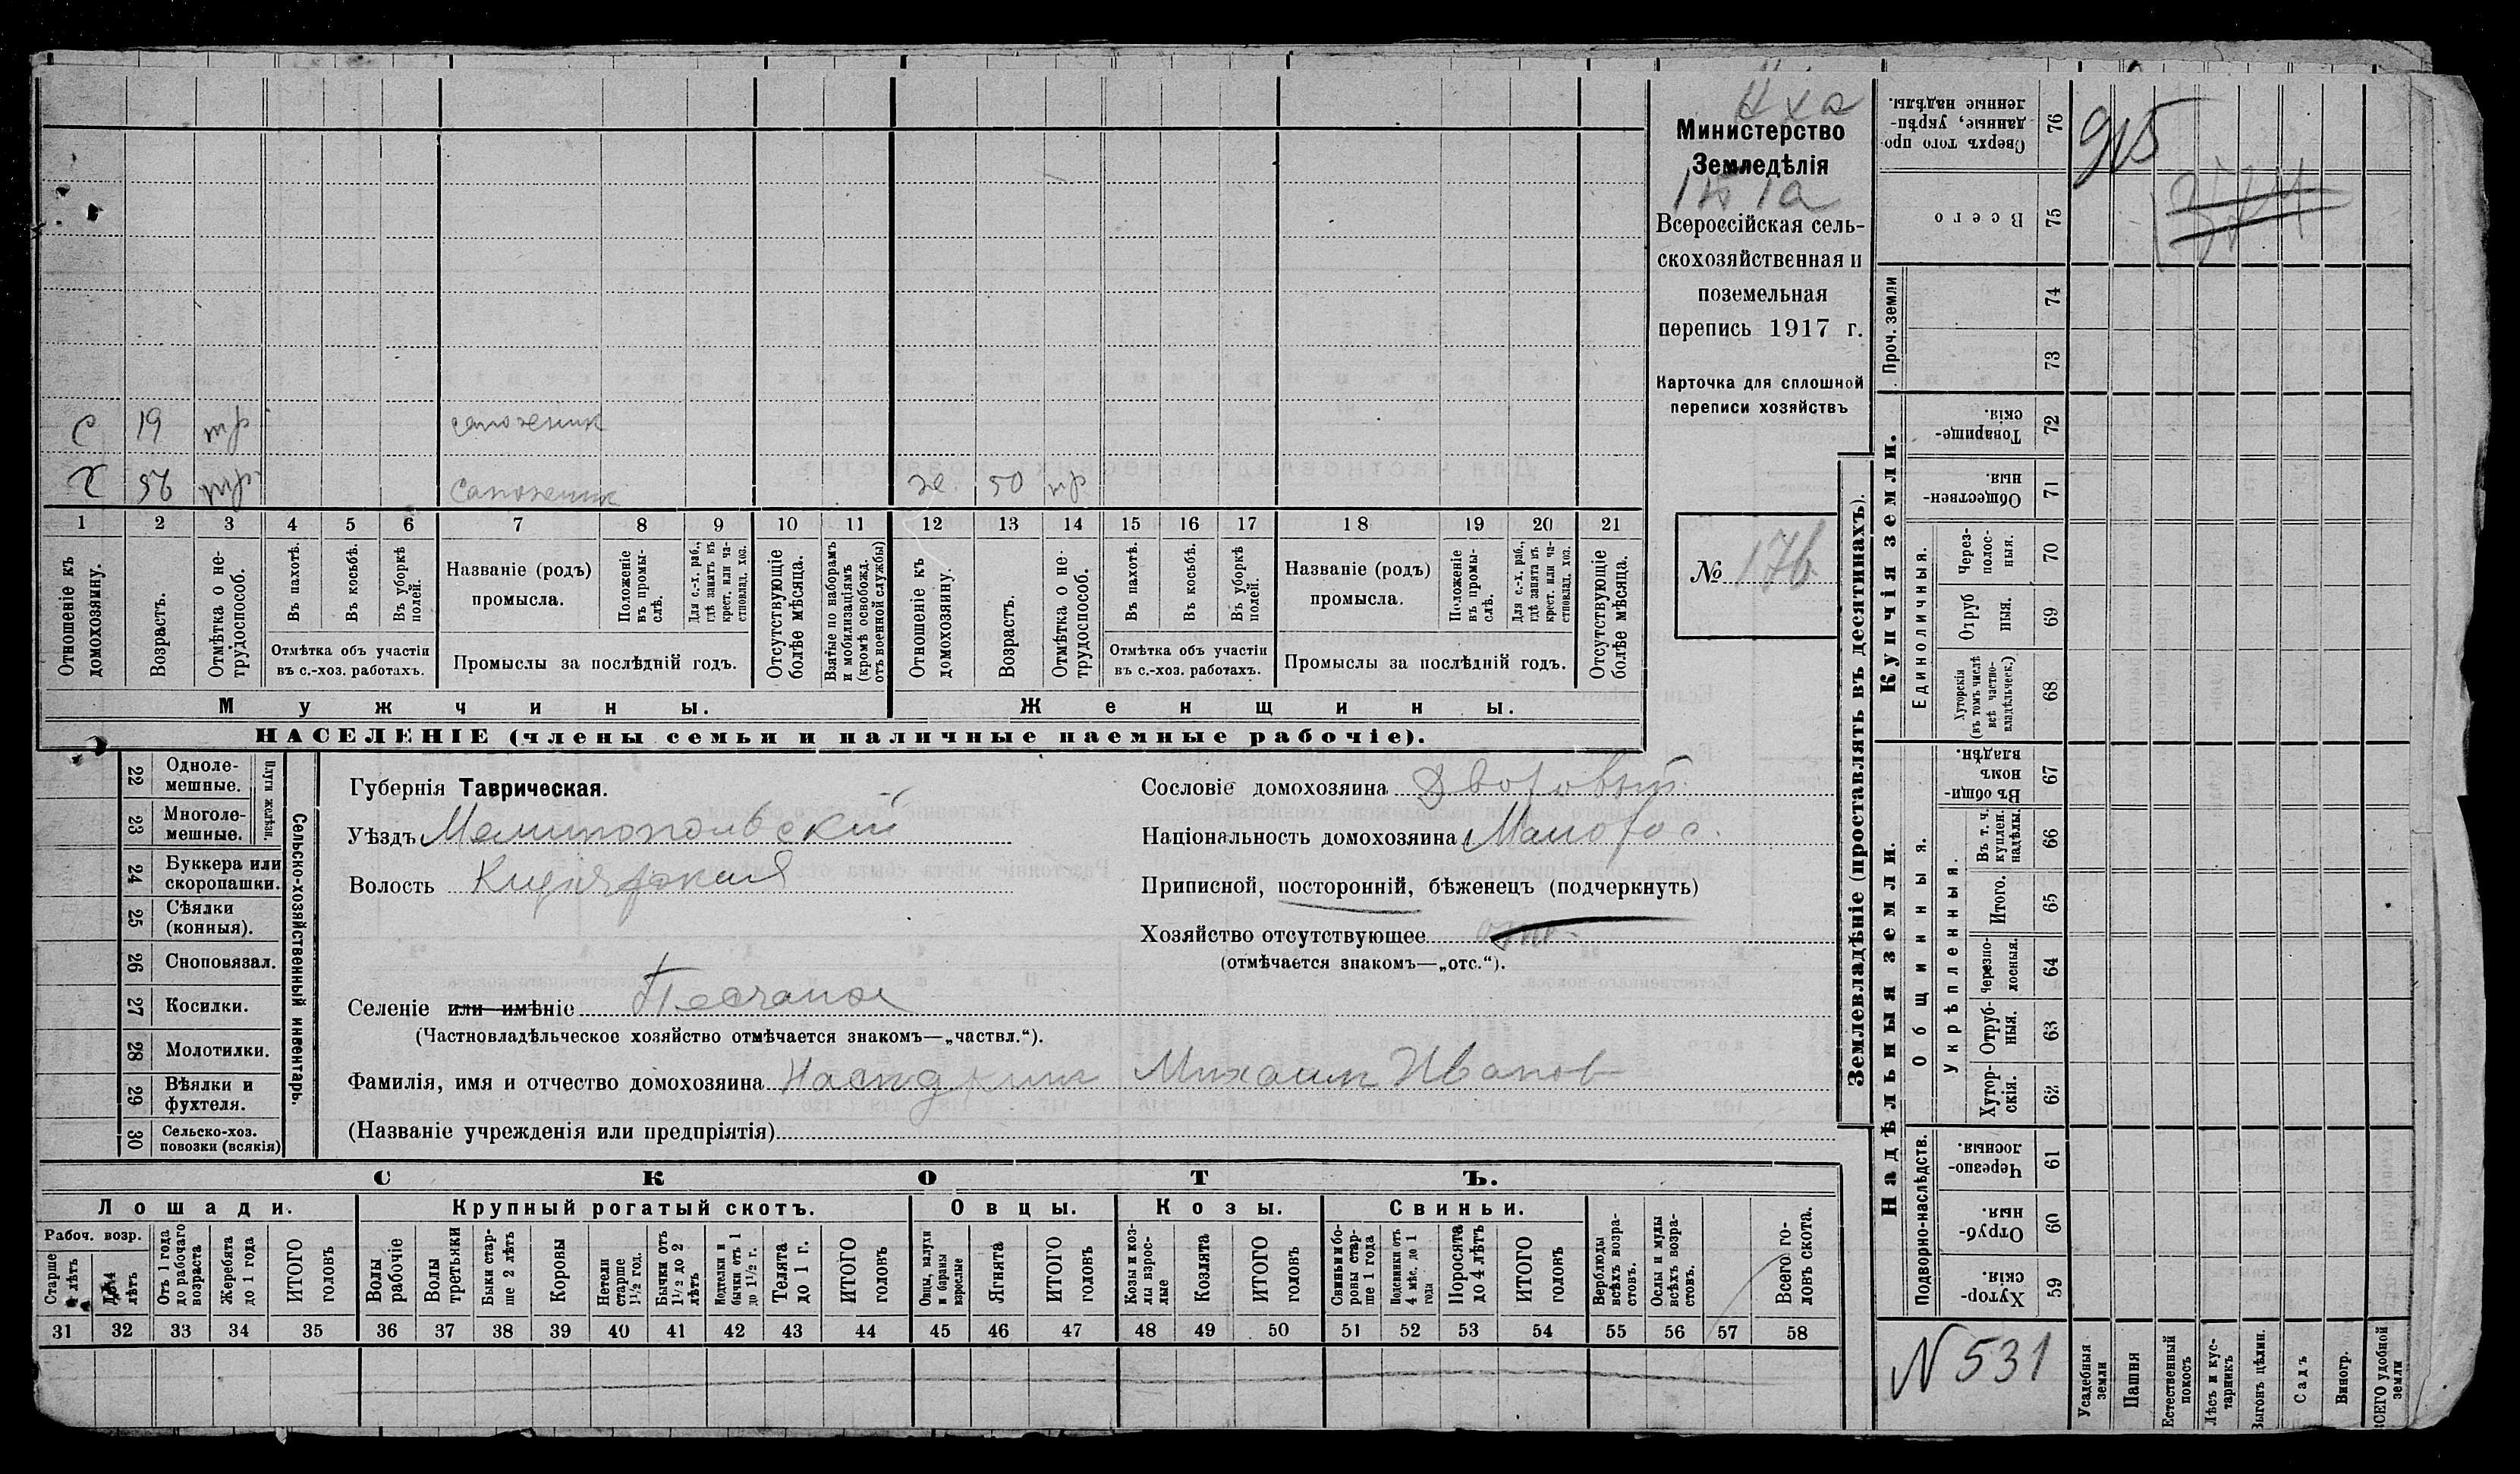 Министерство
Земледѣлія
Всероссійская сель-
скохозяйственная и
поземельная
перепись 1917 г.
Карточка для сплошной
переписи хозяйствъ
№ 176
с 19 тр сапожник
х 56 тр сапожник ж. 50 тр
1 2 3 4 5 6 7 8 9 10 11 12 13 14 15 16 17 18 19 20 21
Отношеніе къ домохозяину.
Возрастъ.
Отмѣтка о не-трудоспособ.
Въ пахотѣ.
Въ косьбѣ.
Въ уборкѣ полей.
Отмѣтка объ участіи
въ с.-хоз. работахъ.
Названіе (родъ)
промысла.
Положеніе въ промы-слѣ.
Для с.-х. раб., гдѣ занятъ въ крест. или ча-стновлад. хоз.
Промыслы за послѣдній годъ.
Отсутствующіе болѣе мѣсяца.
Взятые по наборамъ и мобилизаціямъ (кромѣ освобожд. отъ военной службы)
Отношеніе къ домохозяину.
Возрастъ.
Отмѣтка о не-трудоспособ.
Въ пахотѣ.
Въ косьбѣ.
Въ уборкѣ полей.
Отмѣтка объ участіи
въ с.-хоз. работахъ.
Названіе (родъ)
промысла.
Положеніе въ промы-слѣ.
Для с.-х. раб., гдѣ занята въ крест. или ча-стновлад. хоз.
Промыслы за послѣдній годъ.
Отсутствующіе болѣе мѣсяца.
Мужчины. Женщины.
НАСЕЛЕНІЕ (члены семьи и наличные наемные рабочіе).
22 Одноле-мешные.
23 Многоле-мешные.
Плуги желѣзн.
24 Буккера или скоропашки.
25 Сѣялки (конныя).
26 Сноповязал.
27 Косилки.
28 Молотилки.
29 Вѣялки и фухтеля.
30 Сельско-хоз. повозки (всякія)
Сельско-хозяйственный инвентарь.
Губернія Таврическая.
Уѣздъ Мелитопольскій
Волость
Селеніе или имѣніе Песчаное
(Частновладѣльческое хозяйство отмѣчается знакомъ—„частвл.“).
Фамилія, имя и отчество домохозяина Михаил Иванов
(Названіе учрежденія или предпріятія)
Сословіе домохозяина Дворовый
Національность домохозяина Малорос.
Приписной, посторонній, бѣженецъ (подчеркнуть)
Хозяйство отсутствующее
(отмѣчается знакомъ—„отс.“).
СКОТЪ.
Лошади. Крупный рогатый скотъ. Овцы. Козы. Свиньи.
Рабоч. возр.
Старше лѣтъ
лѣтъ
Отъ 1 года до рабочаго возраста
Жеребята до 1 года
ИТОГО головъ
Волы рабочіе
Волы третьяки
Быки стар-ше 2 лѣтъ
Коровы
Нетели старше 1½ год.
Бычки отъ 1½ до 2 лѣтъ
Телки и бычки отъ 1 до 1½ г.
Телята до 1 г.
ИТОГО головъ
Овцы, валухи и бараны взрослые
Ягнята
ИТОГО головъ
Козы и коз-лы взрос-лые
Козлята
ИТОГО головъ
Свиньи и бо-ровы стар-ше 1 года
Подсвинки отъ 4 мѣс. до 1 года
Поросята до 4 лѣтъ
ИТОГО головъ
Верблюды всѣхъ возра-стовъ.
Ослы и мулы всѣхъ возра-стовъ.
Всего го-ловъ скота.
31 32 33 34 35 36 37 38 39 40 41 42 43 44 45 46 47 48 49 50 51 52 53 54 55 56 57 58
Землевладѣніе (проставлять въ десятинахъ).
Надѣльныя земли. Купчія земли.
Проч. земли
915
1374
76 Сверхъ того про-данные, укрѣп-ленные надѣлы.
75 Всего
74
73
72 Товарище-скія.
71 Обществен-ныя.
Единоличныя.
70 Через-полос-ныя.
69 Отруб ныя.
68 Хуторскія (въ томъ числѣ всѣ частно-владѣльческ.)
Общинныя.
67 Въ общи-номъ владѣн.
Укрѣпленныя.
66 Въ т. ч. куплен. надѣлы.
65 Итого.
64 Черезпо-лосныя.
63 Отруб-ныя.
62 Хутор-скія.
Подворно-наслѣдств.
61 Черезпо-лосныя
60 Отруб-ныя.
59 Хутор-скія.
N 531
Усадебныя земли
Пашня
Естественный покосъ
Лѣсъ и кус-тарникъ
Выгонъ цѣлин.
Садъ
Виногр.
ВСЕГО удобной земли